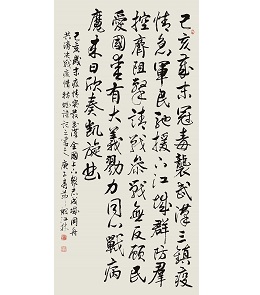 己亥歲末冠毒襲武漢三鎮疫
情急軍民馳援入江城群防群
控齊阻擊請戰參戰無反顧民
愛國當有大義勠力同心戰病
魔來日欣奏凱旋曲
己亥歲末疫情突發武漢全國成城同舟
共濟決戰疫情庚子春